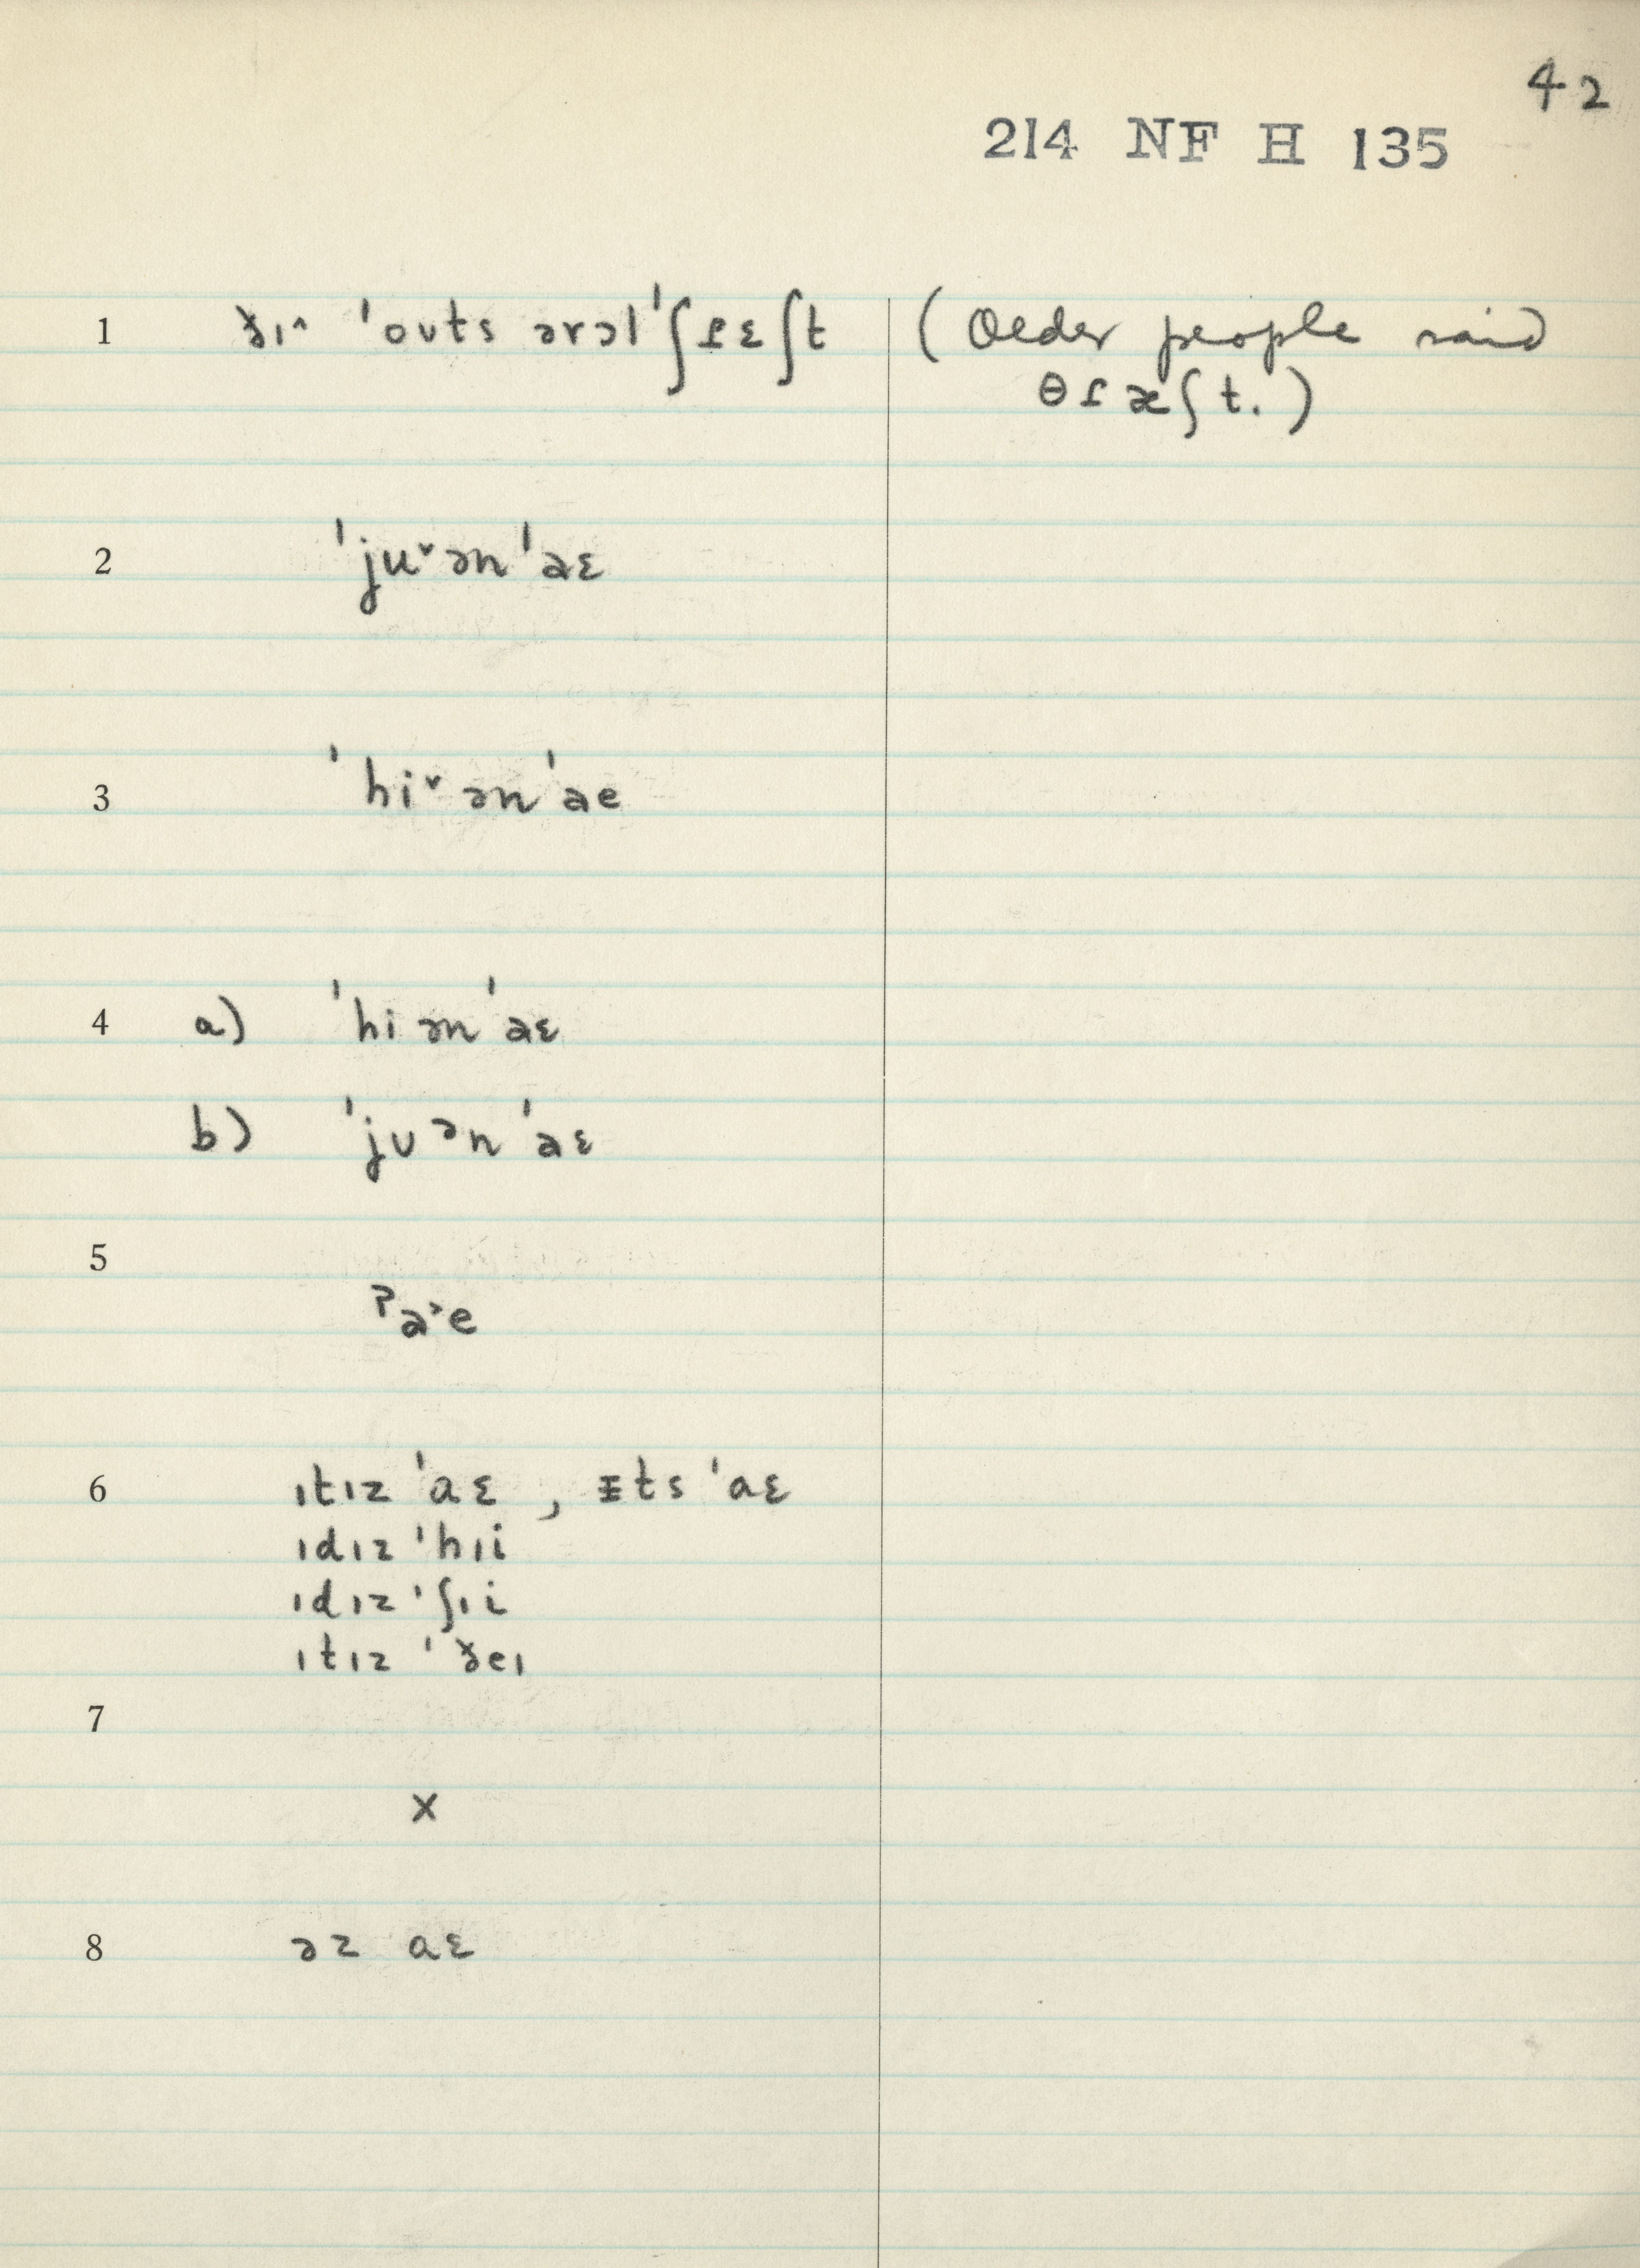 42
214 NF H 135
1 ðɪ˄ ˈoʊts ərɔl ˈʃɾɛʃt (Older people said
θɾæʃt.)
2 ˈju˅ ən ˈaɛ
3 ˈhi˅ ən ˈae
4 a) ˈhi ən ˈaɛ
b) ˈjʊ ən ˈaɛ
5
ʔa˃e
6 ɪtɪz ˈaɛ , ɪts ˈaɛ
ɪdɪz ˈhɪi
ɪdɪz ˈʃɪi
ɪtɪz ˈðeɪ
7
x
8 əz aɛ